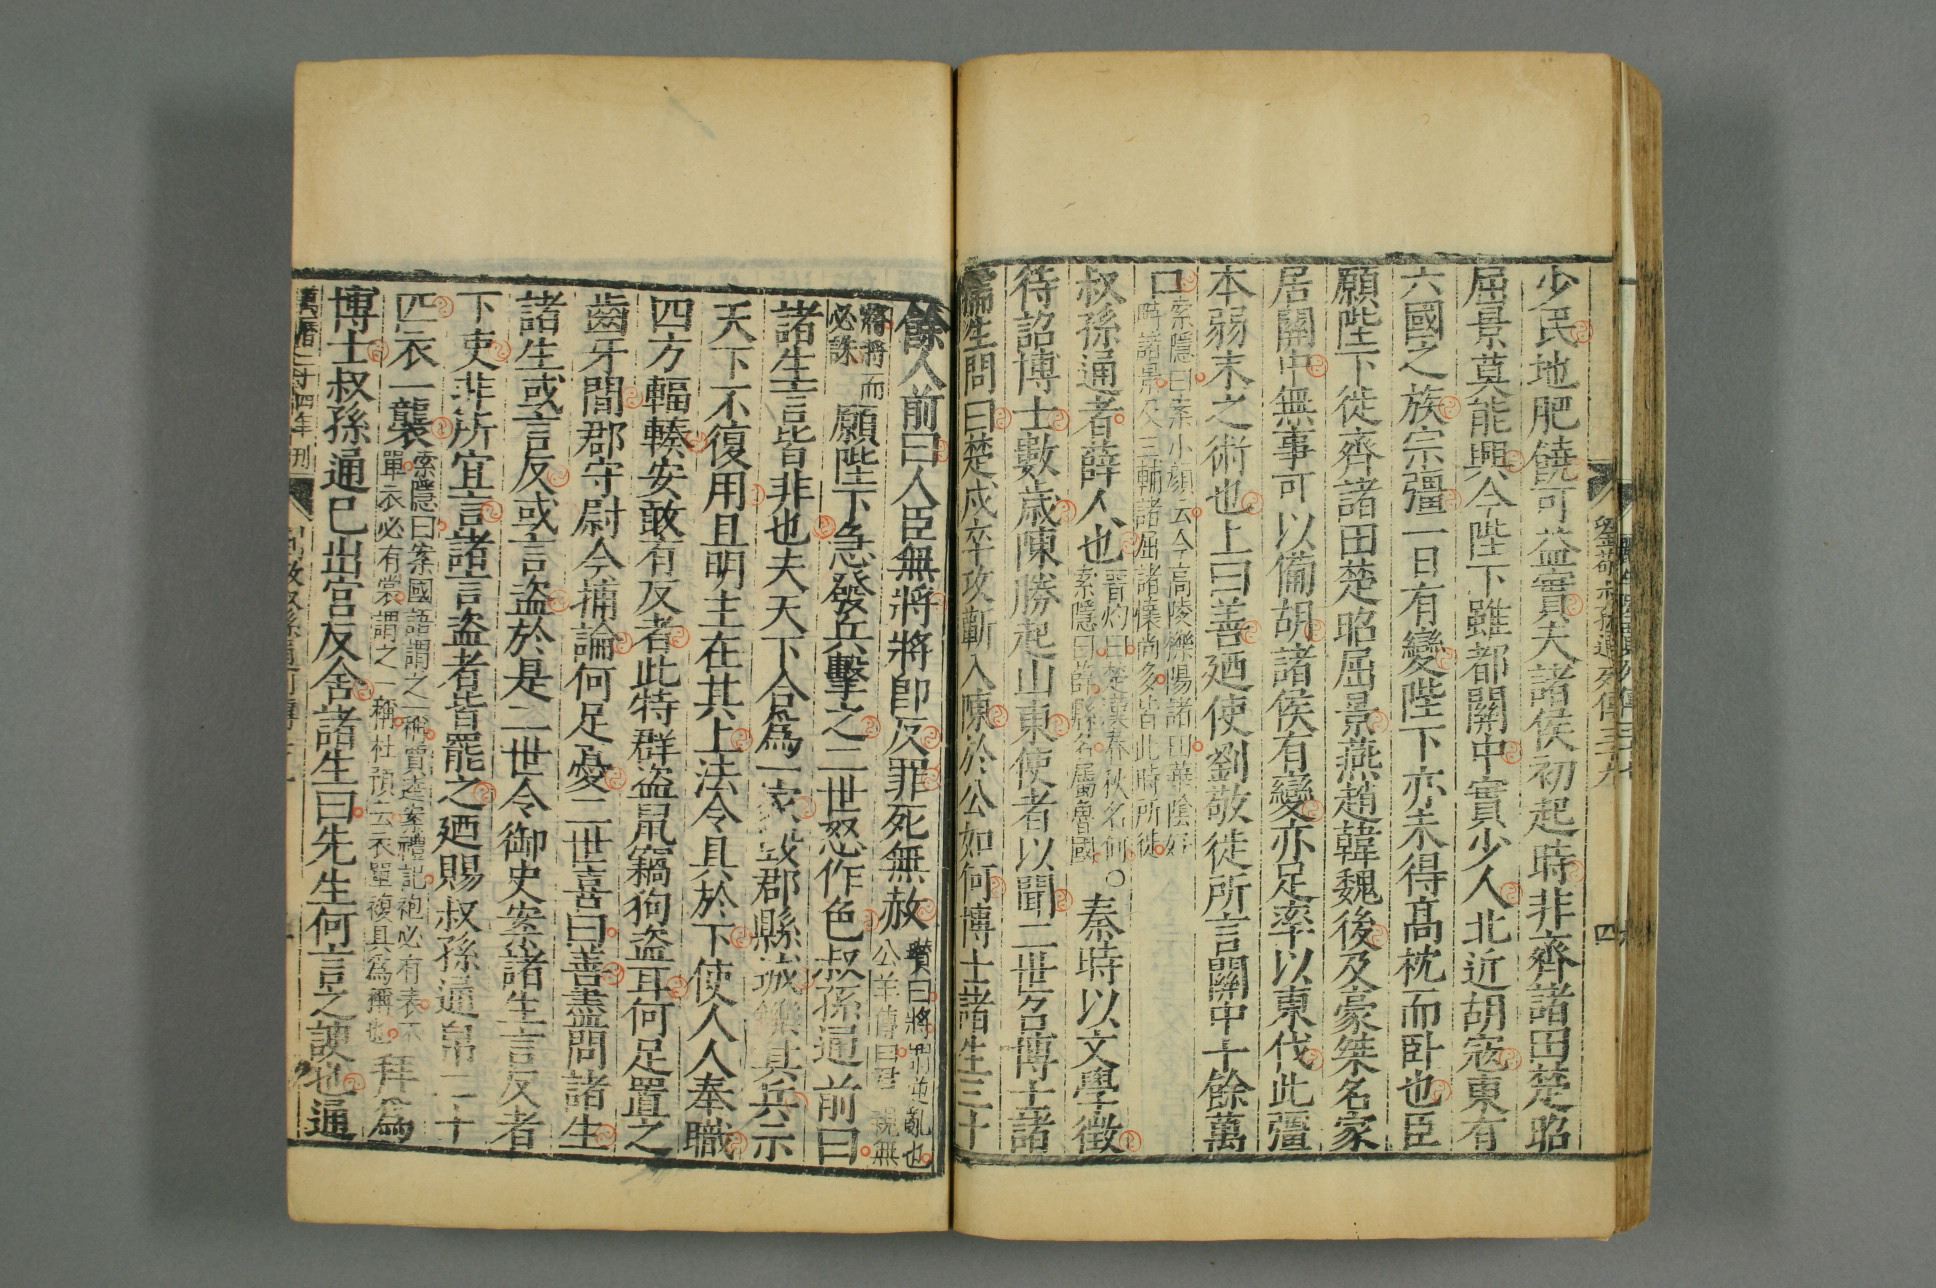 劉敬叔孫通列傳三十九
四
少民地肥饒可益實夫諸侯初起時非齊諸田楚昭
屈景莫能興今陛下雖都關中實少人北近胡寇東有
六國之族宗彊一日有變陛下亦未得高枕而卧也臣
願陛下徙齊諸田楚昭屈景燕趙韓魏後及豪桀名家
居關中無事可以備胡諸侯有變亦足率以東伐此彊
本弱末之術也上曰善廼使劉敬徙所言關中十餘萬
口索隱曰案小顔云今高陵櫟陽諸田華陰好
畤諸景及三輔諸屈諸懷尚多皆此時所徙
叔孫通者薛人也晉灼曰楚漢春秋名何
索隱曰薛縣名屬魯國○秦時以文學徵
待詔博士數歲陳勝起山東使者以聞二世召博士諸
儒生問曰楚戍卒攻蘄入陳於公如何博士諸生三十
餘人前曰人臣無將將即反罪死無赦瓚曰將謂逆亂也
公羊傳曰君親無
將將而
必誅願陛下急發兵擊之二世怒作色叔孫通前曰
諸生言皆非也夫天下合爲一家毀郡縣城鑠其兵示
天下不復用且明主在其上法令具於下使人人奉職
四方輻輳安敢有反者此特群盜鼠竊狗盜耳何足置之
齒牙間郡守尉今捕論何足憂二世喜曰善盡問諸生
諸生或言反或言盜於是二世令御史案諸生言反者
下吏非所宜言諸言盜者皆罷之廼賜叔孫通帛二十
匹衣一襲索隱曰案國語謂之一稱賈逵案禮記袍必有表不
單衣必有裳謂之一稱杜預云衣單複具爲襧也拜爲
博士叔孫通已出宮反舍諸生曰先生何言之諛也通